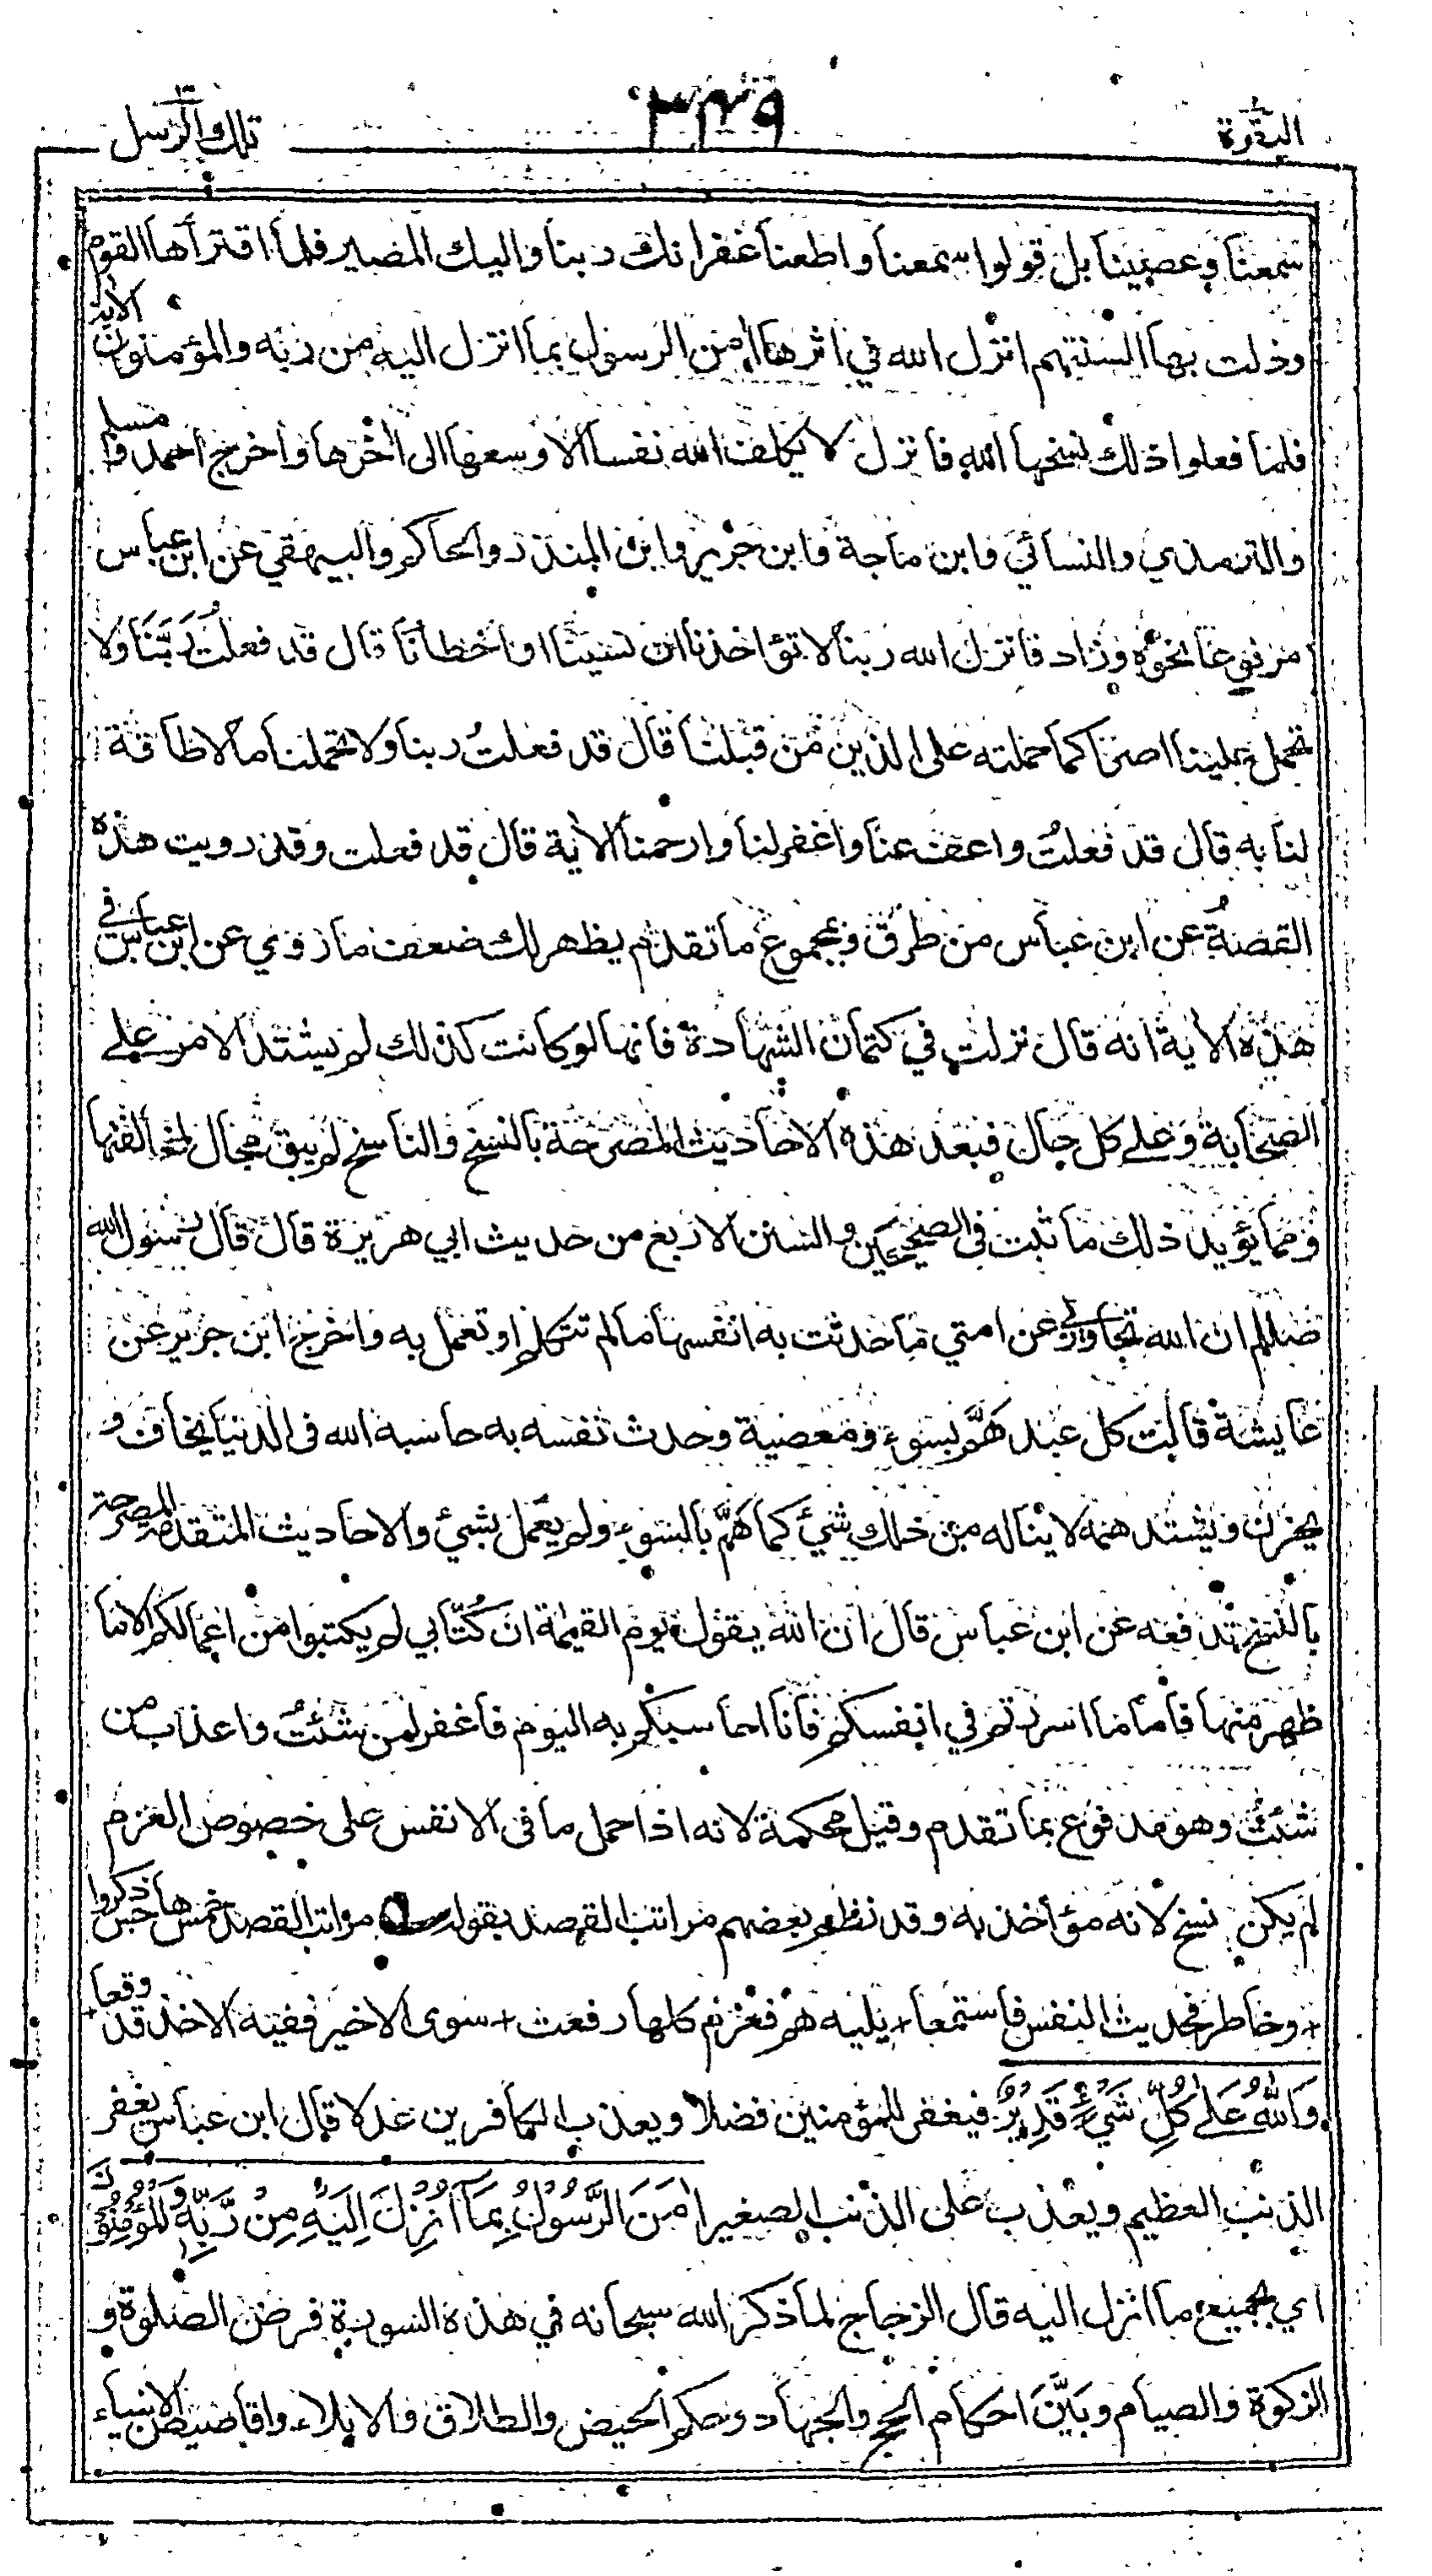 البقرة
٣٤٩
تلك الرسل
سمعنا وعصينا بل قولوا سمعنا واطعنا غفرانك ربنا واليك المصير فلما اقترأها القوم
وذلت بها السنتهم انزل الله في اثرها امن الرسول بما انزل اليه من ربه والمؤمنون الاية
فلما فعلوا ذلك نسخها الله فانزل لا يكلف الله نفسا الا وسعها الى اخرها واخرج احمد ومسلم
والترمذي والنسائي وابن ماجة وابن جرير وابن المنذر والحاكم والبيهقي عن ابن عباس
مرفوعا نحوه وزاد فانزل الله ربنا لا تؤاخذنا ان نسينا او اخطأنا قال قد فعلتُ ربنا ولا
تحمل علينا اصرا كما حملته على الذين من قبلنا قال قد فعلتُ ربنا ولا تحملنا ما لا طاقة
لنا به قال قد فعلتُ واعف عنا واغفر لنا وارحمنا الاية قال قد فعلت وقد رويت هذه
القصةُ عن ابن عباس من طرق وبمجموع ما تقدم يظهر لك ضعف ما روي عن ابن عباس في
هذه الاية انه قال نزلت في كتمان الشهادة فانها لو كانت كذلك لم يشتد الامر على
الصحابة وعلى كل حال فبعد هذه الاحاديث المصرحة بالنسخ والناسخ لم يبق مجال لمخالفتها
ومما يؤيد ذلك ما ثبت فى الصحيحين والسنن الاربع من حديث ابي هريرة قال قال رسول الله
صللم ان الله تجاوز لي عن امتي ما حدثت به انفسها ما لم تتكلم او تعمل به واخرج ابن جرير عن
عايشة قالت كل عبد همَّ بسوء ومعصية وحدث نفسه به حاسبه الله فى الدنيا يخاف و
يحزن ويشتد همه لا يناله من ذلك شئ كما همَّ بالسوء ولم يعمل بشئ والاحاديث المتقدمة المصرحة
بالنسخ تدفعه عن ابن عباس قال ان الله يقول يوم القيمة ان كُتّابي لم يكتبوا من اعمالكم الا ما
ظهر منها فاما ما اسررتم في انفسكم فانا احاسبكم به اليوم فاغفر لمن شئتُ واعذب من
شئتُ وهو مدفوع بما تقدم وقيل محكمة لانه اذا حمل ما فى الانفس على خصوص العزم
لم يكن نسخ لانه مؤاخذ به وقد نظم بعضهم مراتب القصد بقوله مراتب القصد خمس هاجس ذكروا
+ وخاطر فحديث النفس فاستمعا + يليه هم فعزم كلها رفعت + سوى الاخير ففيه الاخذ قد وقعا +
وَاللهُ عَلَى كُلِّ شَيْءٍ قَدِيْرٌ فيغفر للمؤمنين فضلا ويعذب الكافرين عدلا قال ابن عباس يغفر
الذنب العظيم ويعذب على الذنب الصغير اٰمَنَ الرَّسُوْلُ بِمَآ اُنْزِلَ اِلَيْهِ مِنْ رَّبِّهٖ وَالْمُؤْمِنُوْنَ
اي بجميع ما انزل اليه قال الزجاج لما ذكر الله سبحانه في هذه السورة فرض الصلوة و
الزكوة والصيام وبيَّن احكام الحج والجهاد وحكم الحيض والطلاق والايلاء واقاصيص الانبياء